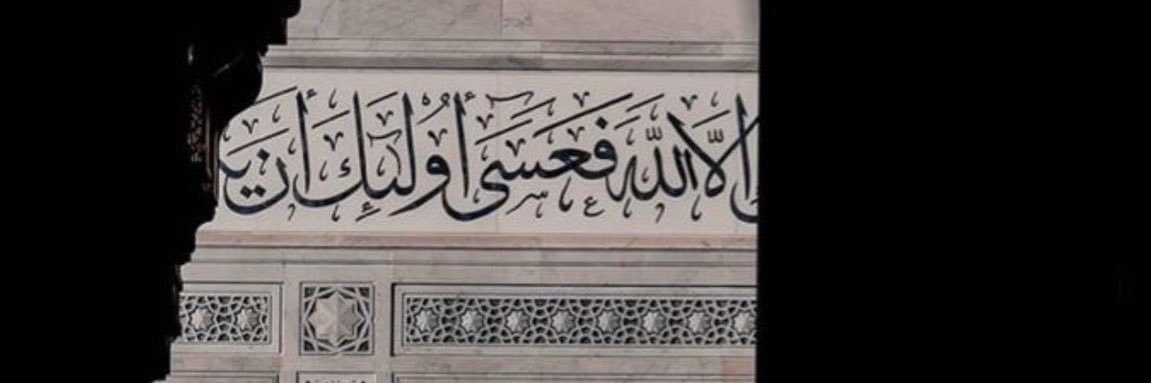 إِلَّا اللَّهَ فَعَسَىٰ أُولَٰئِكَ أَن